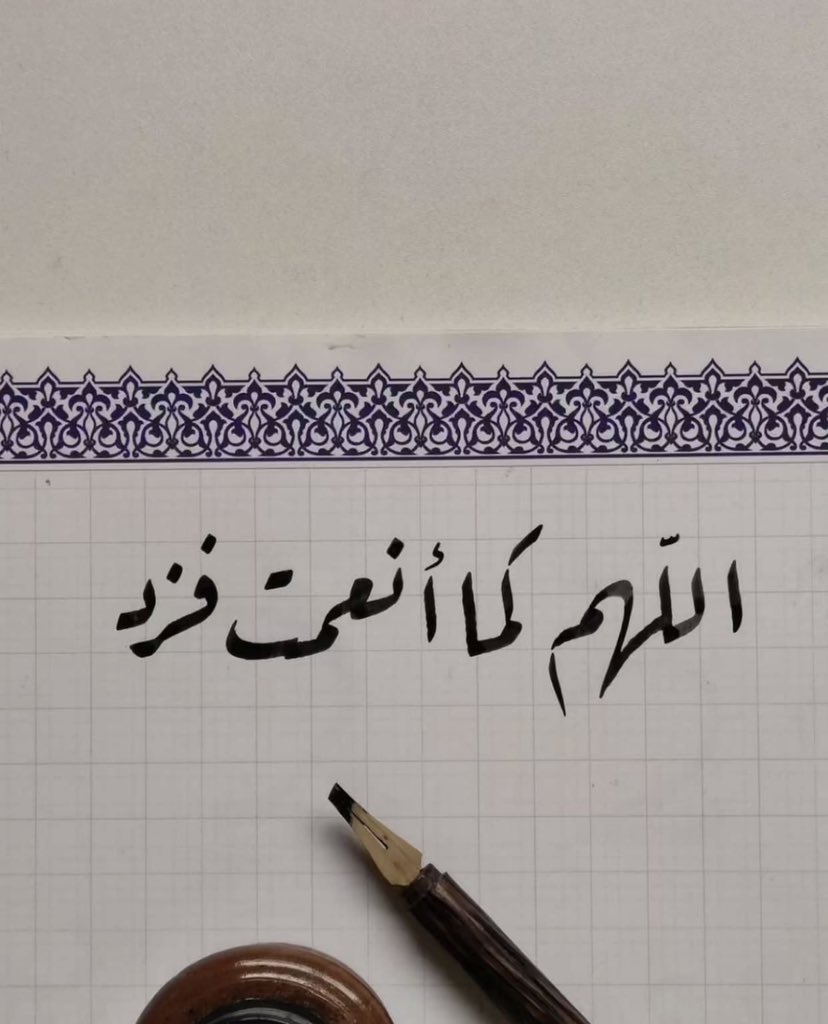 اللّهم كما أنعمت فزد